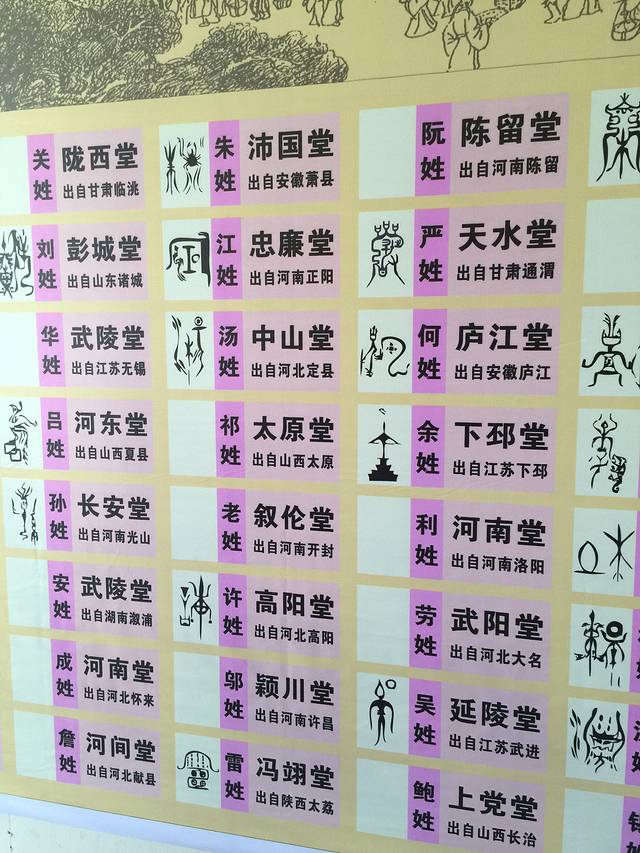 关姓
陇西堂
出自甘肃临洮
朱姓
沛国堂
出自安徽萧县
阮姓
陈留堂
出自河南陈留
刘姓
彭城堂
出自山东诸城
江姓
忠廉堂
出自河南正阳
严姓
天水堂
出自甘肃通渭
华姓
武陵堂
出自江苏无锡
汤姓
中山堂
出自河北定县
何姓
庐江堂
出自安徽庐江
吕姓
河东堂
出自山西夏县
祁姓
太原堂
出自山西太原
余姓
下邳堂
出自江苏下邳
孙姓
长安堂
出自河南光山
老姓
叙伦堂
出自河南开封
利姓
河南堂
出自河南洛阳
安姓
武陵堂
出自湖南溆浦
许姓
高阳堂
出自河北高阳
劳姓
武阳堂
出自河北大名
成姓
河南堂
出自河北怀来
邬姓
颖川堂
出自河南许昌
吴姓
延陵堂
出自江苏武进
詹姓
河间堂
出自河北献县
雷姓
冯翊堂
出自陕西太荔
鲍姓
上党堂
出自山西长治